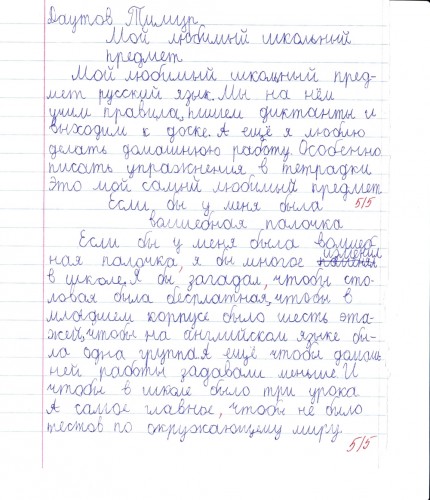 Даутов Тимур.
Мой любимый школьный
предмет
Мой любимый школьный пред-
мет русский язык. Мы на нём
учим правила, пишем диктанты и
выходим к доске. А ещё я люблю
делать домашнюю работу. Особенно
писать упражнения в тетрадки
Это мой самый любимый предмет.
5/5
Если, бы у меня была
волшебная палочка
Если бы у меня была волшеб
ная палочка, я бы многое изменил
в школе. Я бы, загадал, чтобы сто-
ловая была бесплатная, чтобы в
младшем корпусе было шесть эта-
жей, чтобы на английском языке бы-
ла одна группа. А ещё чтобы домаш
ней работы задавали меньше. И
чтобы в школе было три урока
А самое главное, чтобы не было
тестов по окружающему миру.
5/5